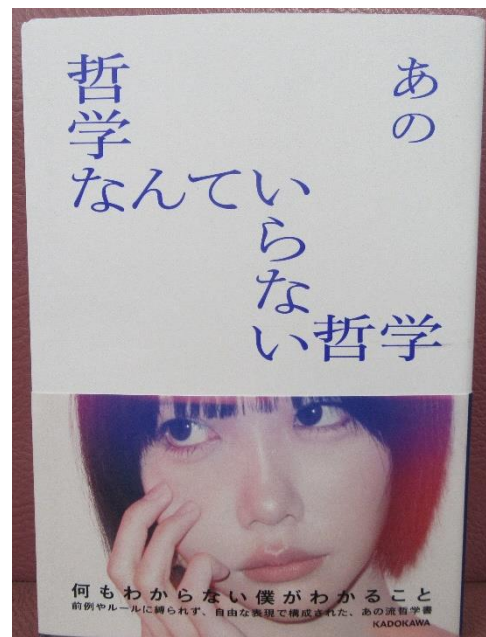 哲学なんていらない哲学
あの
何もわからない僕がわかること
前例やルールに縛られず、自由な表現で構成された、あの流哲学書
KADOKAWA